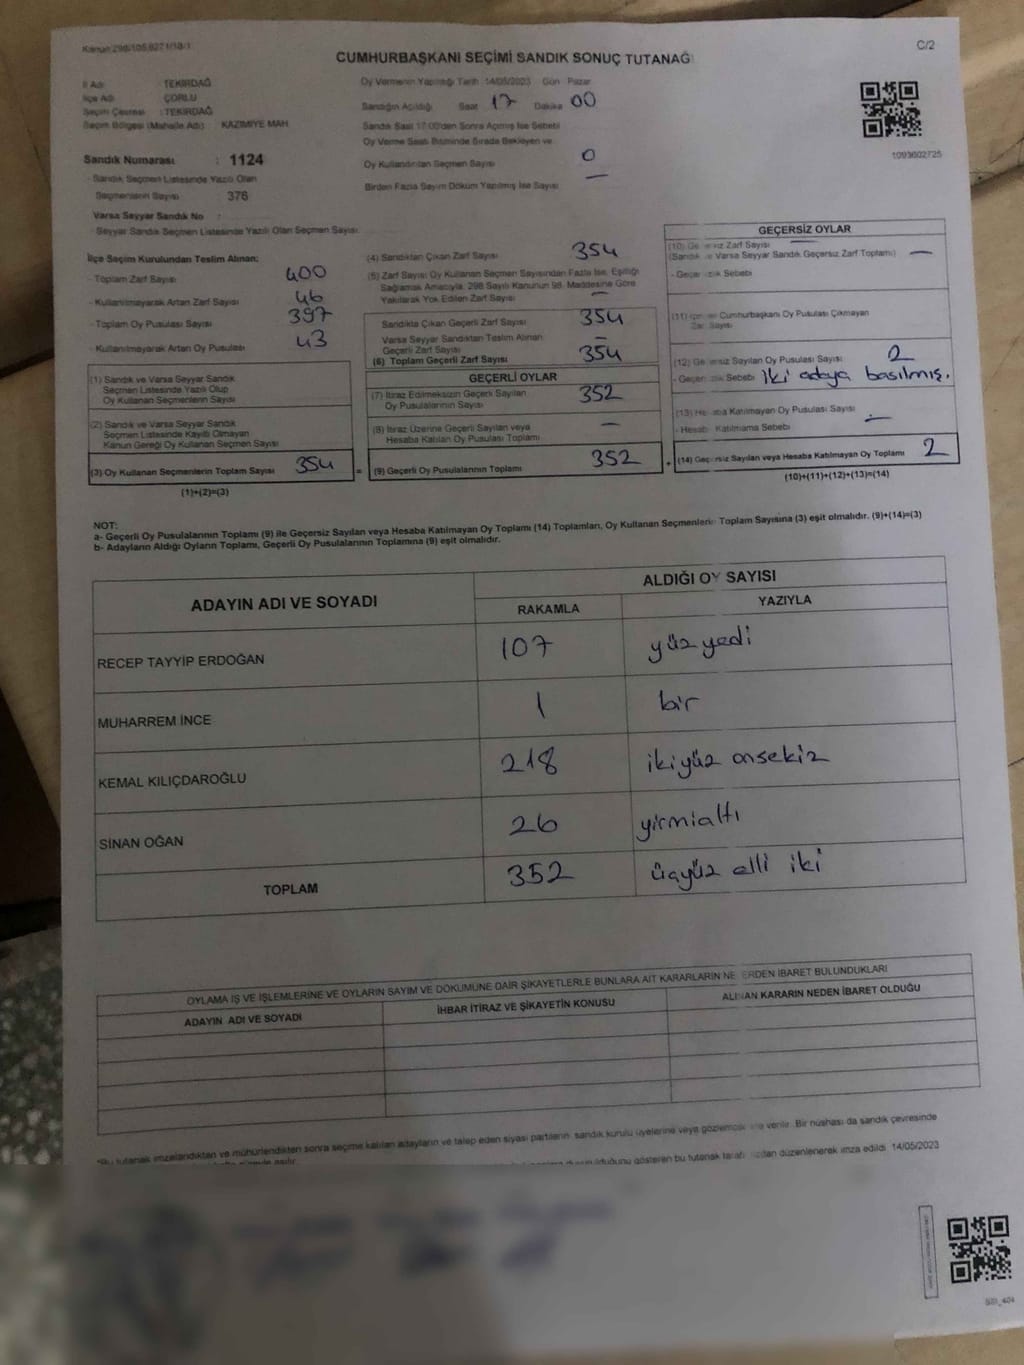 Kanun 298/105,6271/18/1
C/2
CUMHURBAŞKANI SEÇİMİ SANDIK SONUÇ TUTANAĞI
İl Adı : TEKİRDAĞ
İlçe Adı : ÇORLU
Seçim Çevresi : TEKİRDAĞ
Seçim Bölgesi (Mahalle Adı) : KAZIMİYE MAH.
Sandık Numarası : 1124
- Sandık Seçmen Listesinde Yazılı Olan
Seçmenlerin Sayısı 376
Varsa Seyyar Sandık No :
- Seyyar Sandık Seçmen Listesinde Yazılı Olan Seçmen Sayısı:
Oy Vermenin Yapıldığı Tarih 14/05/2023 Gün Pazar
Sandığın Açıldığı Saat 17 Dakika 00
Sandık Saat 17:00'den Sonra Açılmış İse Sebebi
Oy Verme Saati Bitiminde Sırada Bekleyen ve
Oy Kullandırılan Seçmen Sayısı 0
Birden Fazla Sayım Döküm Yapılmış İse Sayısı —
1093602725
İlçe Seçim Kurulundan Teslim Alınan:
- Toplam Zarf Sayısı 400
- Kullanılmayarak Artan Zarf Sayısı 46
- Toplam Oy Pusulası Sayısı 397
- Kullanılmayarak Artan Oy Pusulası 43
(1) Sandık ve Varsa Seyyar Sandık
Seçmen Listesinde Yazılı Olup
Oy Kullanan Seçmenlerin Sayısı
(2) Sandık ve Varsa Seyyar Sandık
Seçmen Listesinde Kayıtlı Olmayan
Kanun Gereği Oy Kullanan Seçmen Sayısı
(3) Oy Kullanan Seçmenlerin Toplam Sayısı 354
(1)+(2)=(3)
(4) Sandıktan Çıkan Zarf Sayısı 354
(5) Zarf Sayısı Oy Kullanan Seçmen Sayısından Fazla İse, Eşitliği
Sağlamak Amacıyla, 298 Sayılı Kanunun 98. Maddesine Göre
Yakılarak Yok Edilen Zarf Sayısı —
Sandıkta Çıkan Geçerli Zarf Sayısı 354
Varsa Seyyar Sandıktan Teslim Alınan
Geçerli Zarf Sayısı —
(6) Toplam Geçerli Zarf Sayısı 354
GEÇERLİ OYLAR
(7) İtiraz Edilmeksizin Geçerli Sayılan
Oy Pusulalarının Sayısı 352
(8) İtiraz Üzerine Geçerli Sayılan veya
Hesaba Katılan Oy Pusulası Toplamı —
= (9) Geçerli Oy Pusulalarının Toplamı 352
GEÇERSİZ OYLAR
(10) Geçersiz Zarf Sayısı
(Sandık ve Varsa Seyyar Sandık Geçersiz Zarf Toplamı) —
- Geçersizlik Sebebi
(11) Cumhurbaşkanı Oy Pusulası Çıkmayan
Zarf Sayısı
(12) Geçersiz Sayılan Oy Pusulası Sayısı 2
- Geçersizlik Sebebi iki adaya basılmış.
(13) Hesaba Katılmayan Oy Pusulası Sayısı —
- Hesaba Katılmama Sebebi
+ (14) Geçersiz Sayılan veya Hesaba Katılmayan Oy Toplamı 2
(10)+(11)+(12)+(13)=(14)
NOT:
a- Geçerli Oy Pusulalarının Toplamı (9) ile Geçersiz Sayılan veya Hesaba Katılmayan Oy Toplamı (14) Toplamları, Oy Kullanan Seçmenlerin Toplam Sayısına (3) eşit olmalıdır. (9)+(14)=(3)
b- Adayların Aldığı Oyların Toplamı, Geçerli Oy Pusulalarının Toplamına (9) eşit olmalıdır.
ADAYIN ADI VE SOYADI
ALDIĞI OY SAYISI
RAKAMLA YAZIYLA
RECEP TAYYİP ERDOĞAN 107 yüz yedi
MUHARREM İNCE 1 bir
KEMAL KILIÇDAROĞLU 218 ikiyüz onsekiz
SİNAN OĞAN 26 yirmialtı
TOPLAM 352 üçyüz elli iki
OYLAMA İŞ VE İŞLEMLERİNE VE OYLARIN SAYIM VE DÖKÜMÜNE DAİR ŞİKAYETLERLE BUNLARA AİT KARARLARIN NELERDEN İBARET BULUNDUKLARI
ADAYIN ADI VE SOYADI İHBAR İTİRAZ VE ŞİKAYETİN KONUSU ALINAN KARARIN NEDEN İBARET OLDUĞU
*Bu tutanak imzalandıktan ve mühürlendikten sonra seçime katılan adayların ve talep eden siyasi partilerin sandık kurulu üyelerine veya gözlemcilerine verilir. Bir nüshası da sandık çevresinde
olduğunu gösteren bu tutanak tarafımızdan düzenlenerek imza edildi. 14/05/2023